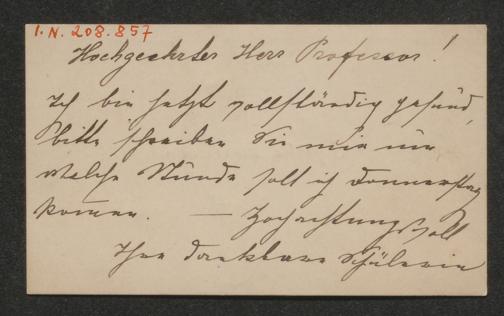 I.N. 208.857
Hochgeehrter Herr Professor!
Ich bin jetzt vollständig gesund,
bitte schreiben Sie mir um
welche Stunde soll ich Donnerstag
kommen. — Hochachtungsvoll
Ihre dankbare Schülerin